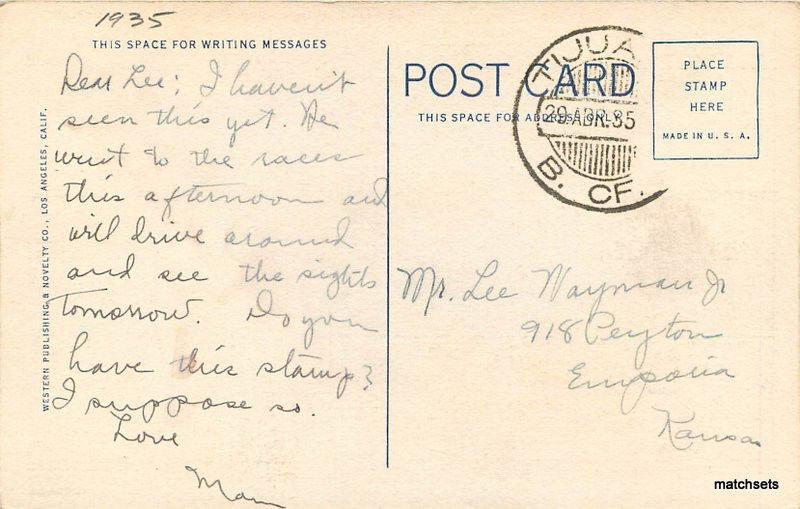 1935
THIS SPACE FOR WRITING MESSAGES
Dear Lee; I haven't
seen this yet. We
went to the races
this afternoon and
will drive around
and see the sights
tomorrow. Do you
have this stamp?
I suppose so.
Love
Mom
WESTERN PUBLISHING & NOVELTY CO., LOS ANGELES, CALIF.
POST CARD
THIS SPACE FOR ADDRESS ONLY
TIJUA
29.ABR.35
B. CF.
PLACE
STAMP
HERE
MADE IN U. S. A.
Mr. Lee Wayman Jr
918 Peyton
Emporia
Kansas
matchsets